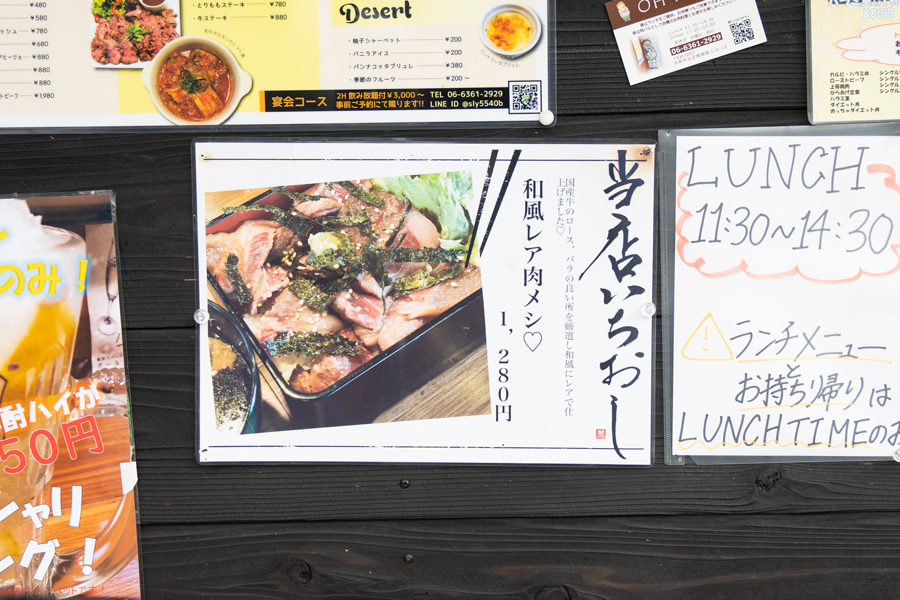 ¥480
¥580
¥780
¥680
¥880
¥880
¥880
¥1,980
とりももステーキ ¥780
牛ステーキ ¥880
Desert
・柚子シャーベット ¥200
・バニラアイス ¥200
・パンナコッタブリュレ ¥380
・季節のフルーツ ¥200～
パンナコッタブリュレ
宴会コース
2H 飲み放題付¥3,000～
事前ご予約にて賜ります!!
TEL 06-6361-2929
LINE ID @sly5540b
06-6361-2929
カルビ・ハラミ丼
ローストビーフ
上等焼肉
からあげ定食
ハラミ重
ダイエット丼
めっちゃダイエット丼
当店いちおし
国産牛のロース、バラの良い所を厳選し和風にレアで仕
上げました♡
和風レア肉メシ♡
1,280円
LUNCH
11:30～14:30
ランチメニュー
と
お持ち帰りは
LUNCHTIMEのお
のみ！
酎ハイが
50円
シャリ
ング！